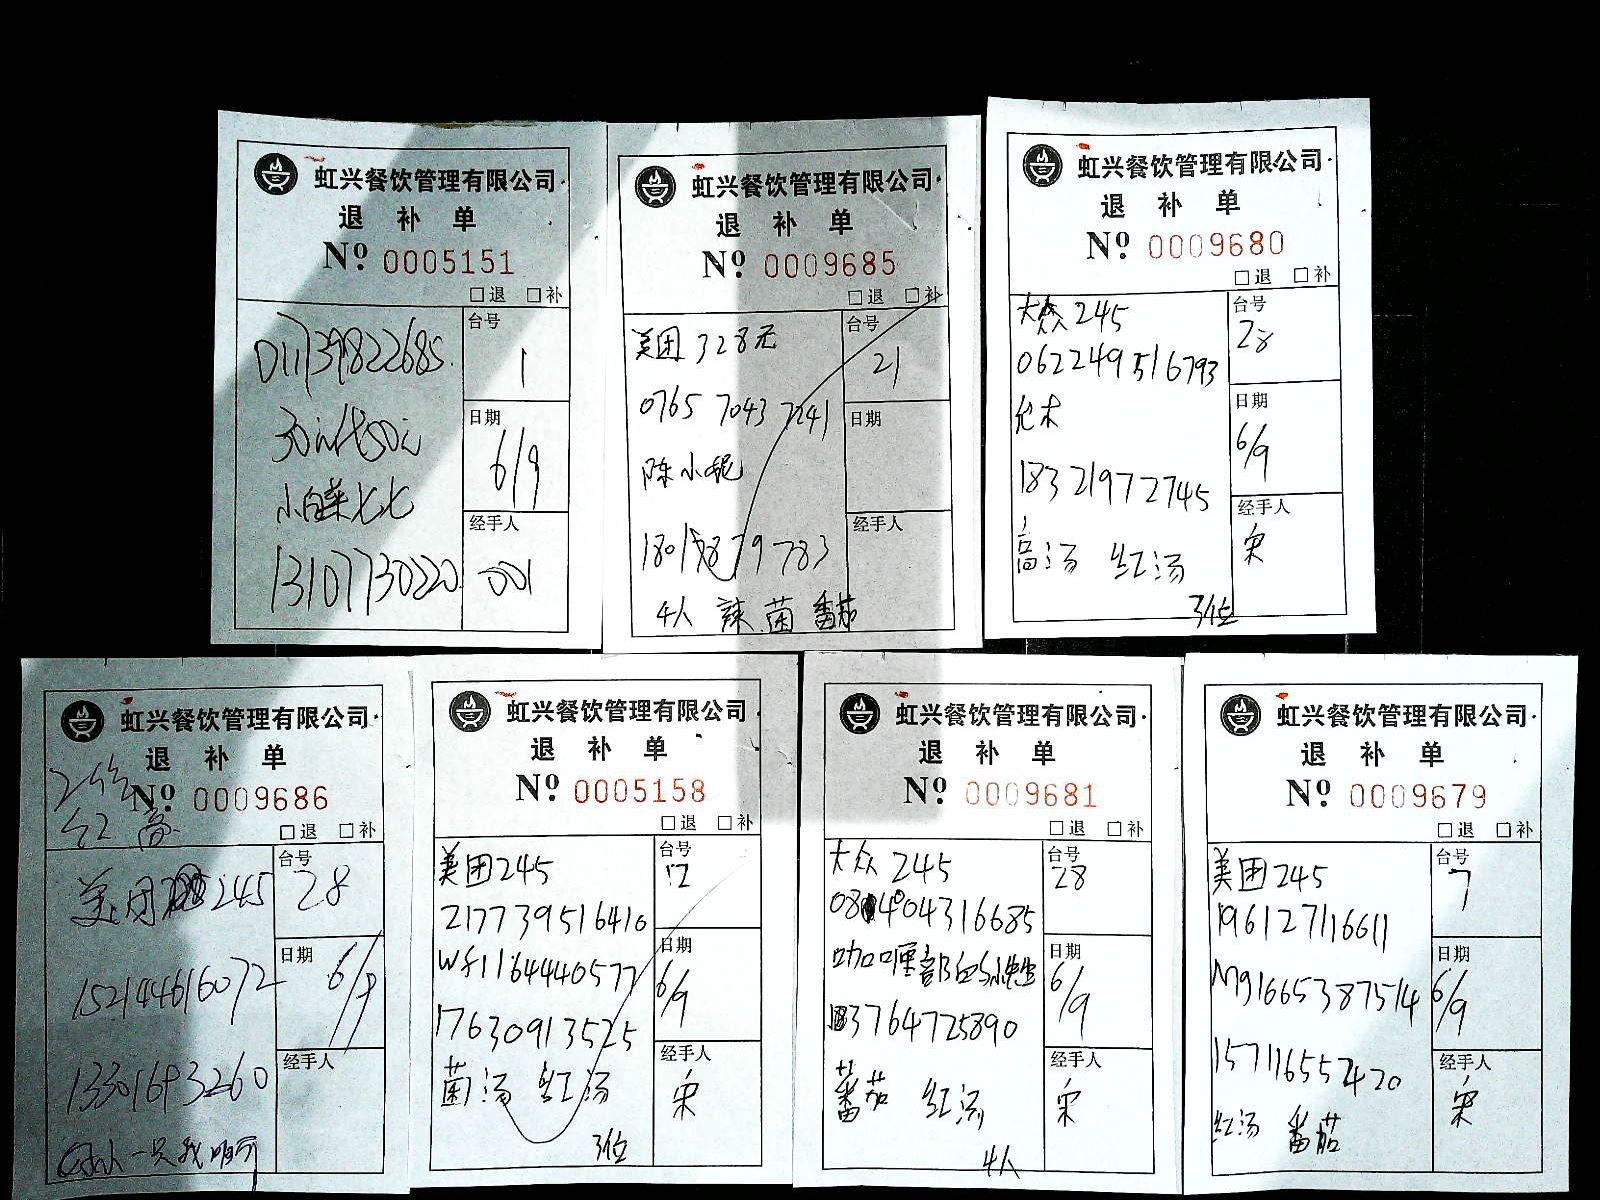 虹兴餐饮管理有限公司
退 补 单
Nº 0005151
□退 □补
台号
1
日期
6/9
小白菜七七
经手人
13107730220
001
虹兴餐饮管理有限公司
退 补 单
Nº 0009685
□退 □补
美团 328元
台号
21
0765 7043 7241
日期
陈小妮
经手人
4人 辣 菌 番茄
虹兴餐饮管理有限公司
退 补 单
Nº 0009680
□退 □补
大众 245
台号
28
062249516793
日期
6/9
18321972745
经手人
宋
高汤 红汤
3位
虹兴餐饮管理有限公司
退 补 单
Nº 0009686
2位
红 高
□退 □补
美团 245
台号
28
日期
6/9
152144616072
13301693260
经手人
虹兴餐饮管理有限公司
退 补 单
Nº 0005158
□退 □补
美团245
台号
12
217739516410
wf1164440577
日期
6/9
17630913525
经手人
宋
菌汤 红汤
3位
虹兴餐饮管理有限公司
退 补 单
Nº 0009681
□退 □补
大众 245
台号
28
日期
6/9
13764725890
经手人
宋
番茄 红汤
4人
虹兴餐饮管理有限公司
退 补 单
Nº 0009679
□退 □补
美团245
台号
7
196127116611
日期
6/9
M91665387514
15711655420
经手人
宋
红汤 番茄